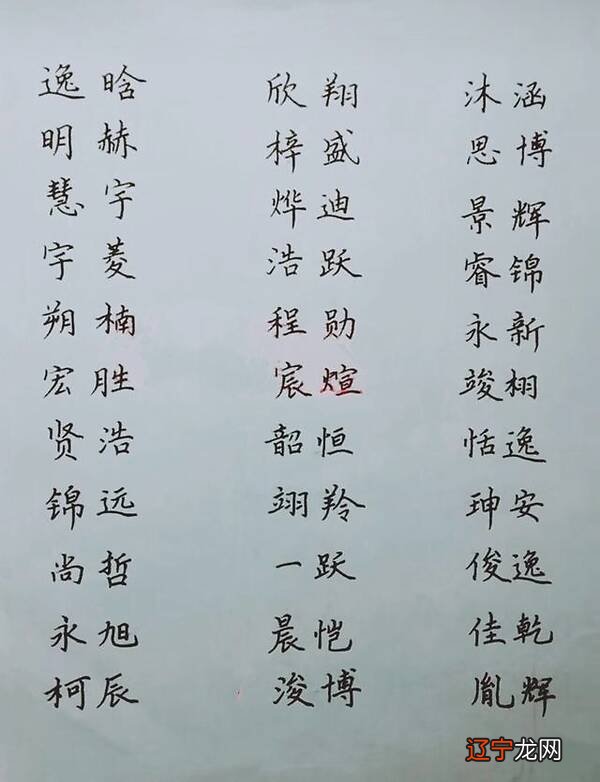 逸晗 欣翔 沐涵
明赫 梓盛 思博
慧宇 烨迪 景辉
宇菱 浩跃 睿锦
朔楠 程勋 永新
宏胜 宸煊 竣栩
贤浩 韶恒 恬逸
锦远 翊羚 珅安
尚哲 一跃 俊逸
永旭 晨恺 佳乾
柯辰 浚博 胤辉
辽宁龙网